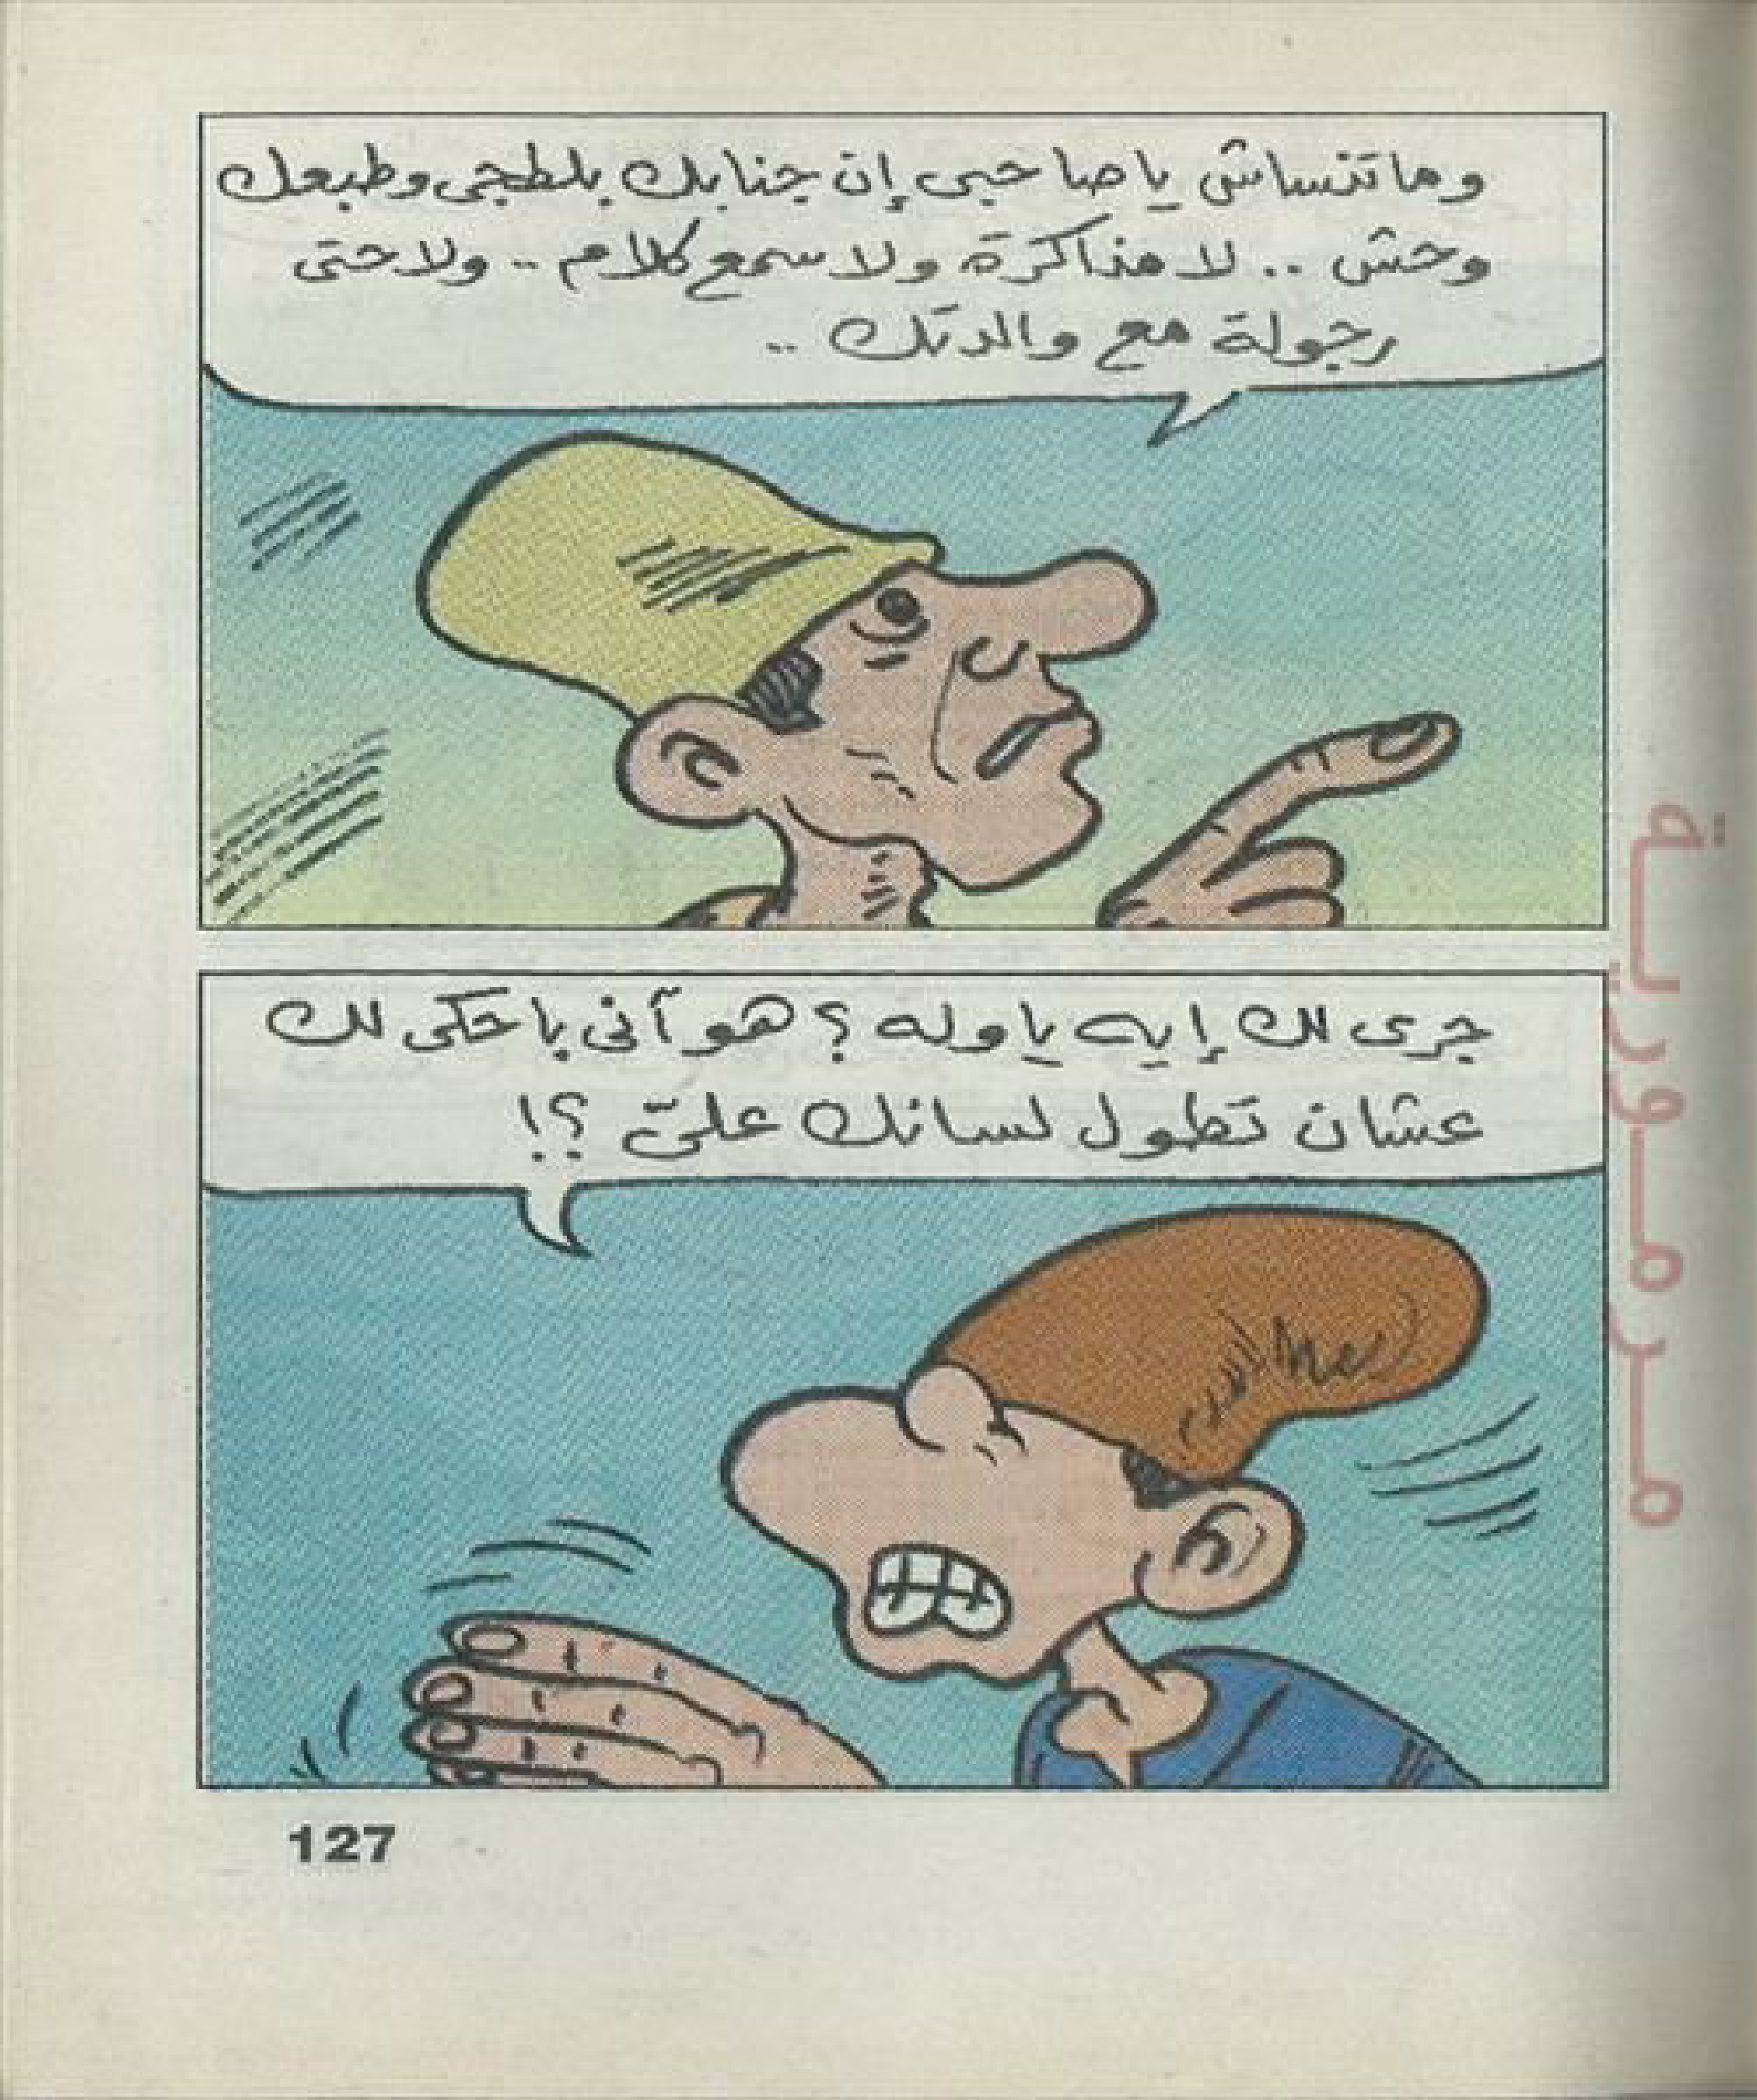 وماتنساش ياصاحبى إن جنابك بلطجى وطبعك
وحش .. لا مذاكرة ولا سمع كلام .. ولا حتى
رجولة مع والدتك ..
جرى لك إيه ياوله ؟ هو آنى باحكى لك
عشان تطول لسانك علىّ ؟!
127
مرمورية